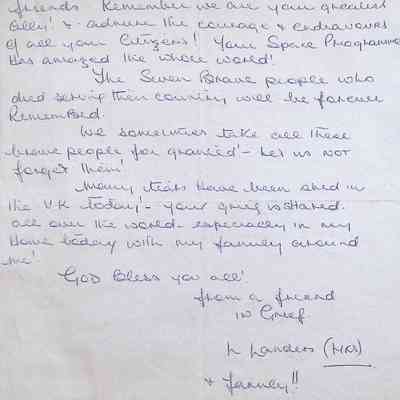 friends Remember we are your greatest
ally! & admire the courage & endeavours
of all your Citizens! Your Space Programme
has amazed the whole world!
The Seven Brave people who
died serving their country will be forever
Remembered.
We sometimes take all these
brave people for granted! - Let us not
forget them!
Many tears have been shed in
the U.K today! - your grief is shared
all over the world - especially in my
Home today with my family around
me!
GOD Bless you all!
from a friend
in Grief.
L Landers (MRS)
& family!!